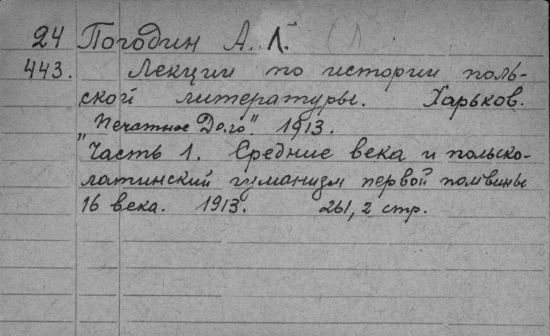 24 Погодин А. Л.
443. Лекции по истории поль-
ской литературы. Харьков.
"Печатное Дело". 1913.
Часть 1. Средние века и польско-
латинский гуманизм первой половины
16 века. 1913. 261, 2 стр.